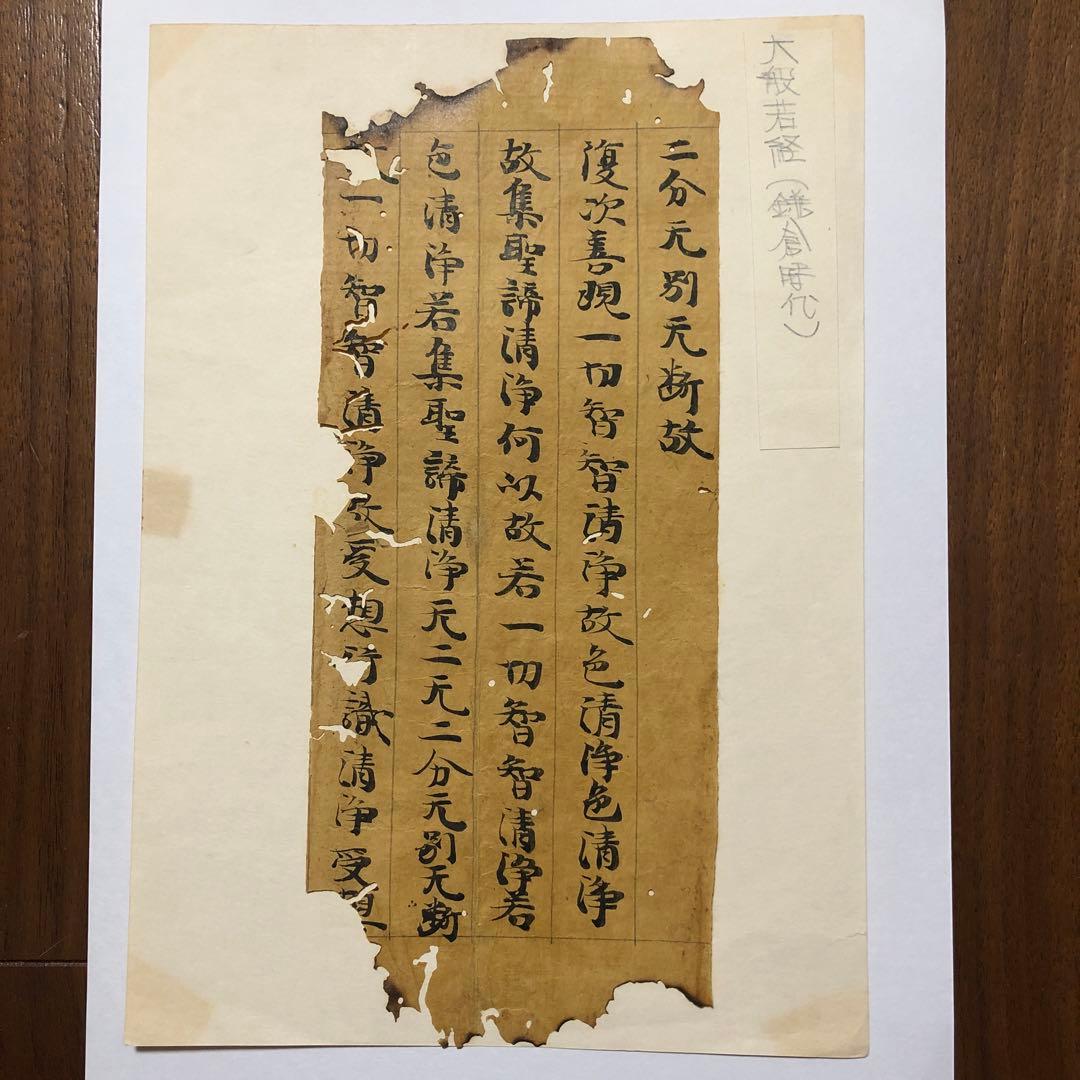 大般若経(鎌倉時代)
二分无別无断故
復次善現一切智智清浄故色清浄色清浄
故集聖諦清浄何以故若一切智智清浄若
色清浄若集聖諦清浄无二无二分无別无断
一切智智清浄故受想行識清浄受想